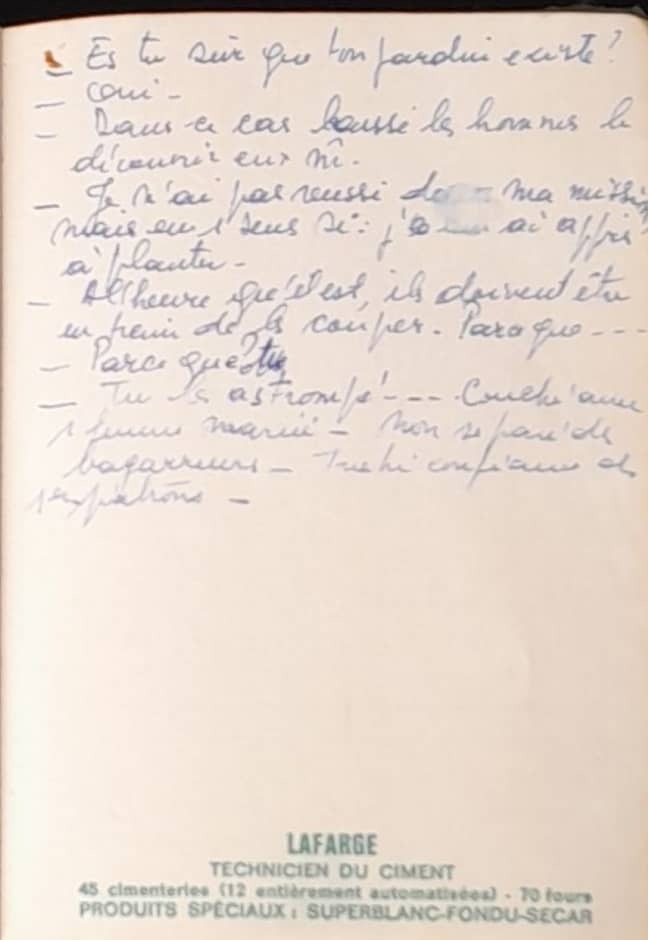 - Es tu sûr que ton jardin existe?
- oui -
- Dans ce cas laisse les hommes le
découvrir eux m̂.
- Je n'ai pas reussi ma
mais en 1 sens si: j' ai appris
à planter -
- A l'heure qu'il est, ils doivent être
en train de la couper. Parce que ---
- Parce que
- Tu as trompé --- Couché avec
1 femme marié - Mon de
bagarreurs - confiance de
ses patrons -
LAFARGE
TECHNICIEN DU CIMENT
45 cimenteries (12 entièrement automatisées) - 70 fours
PRODUITS SPÉCIAUX : SUPERBLANC-FONDU-SECAR